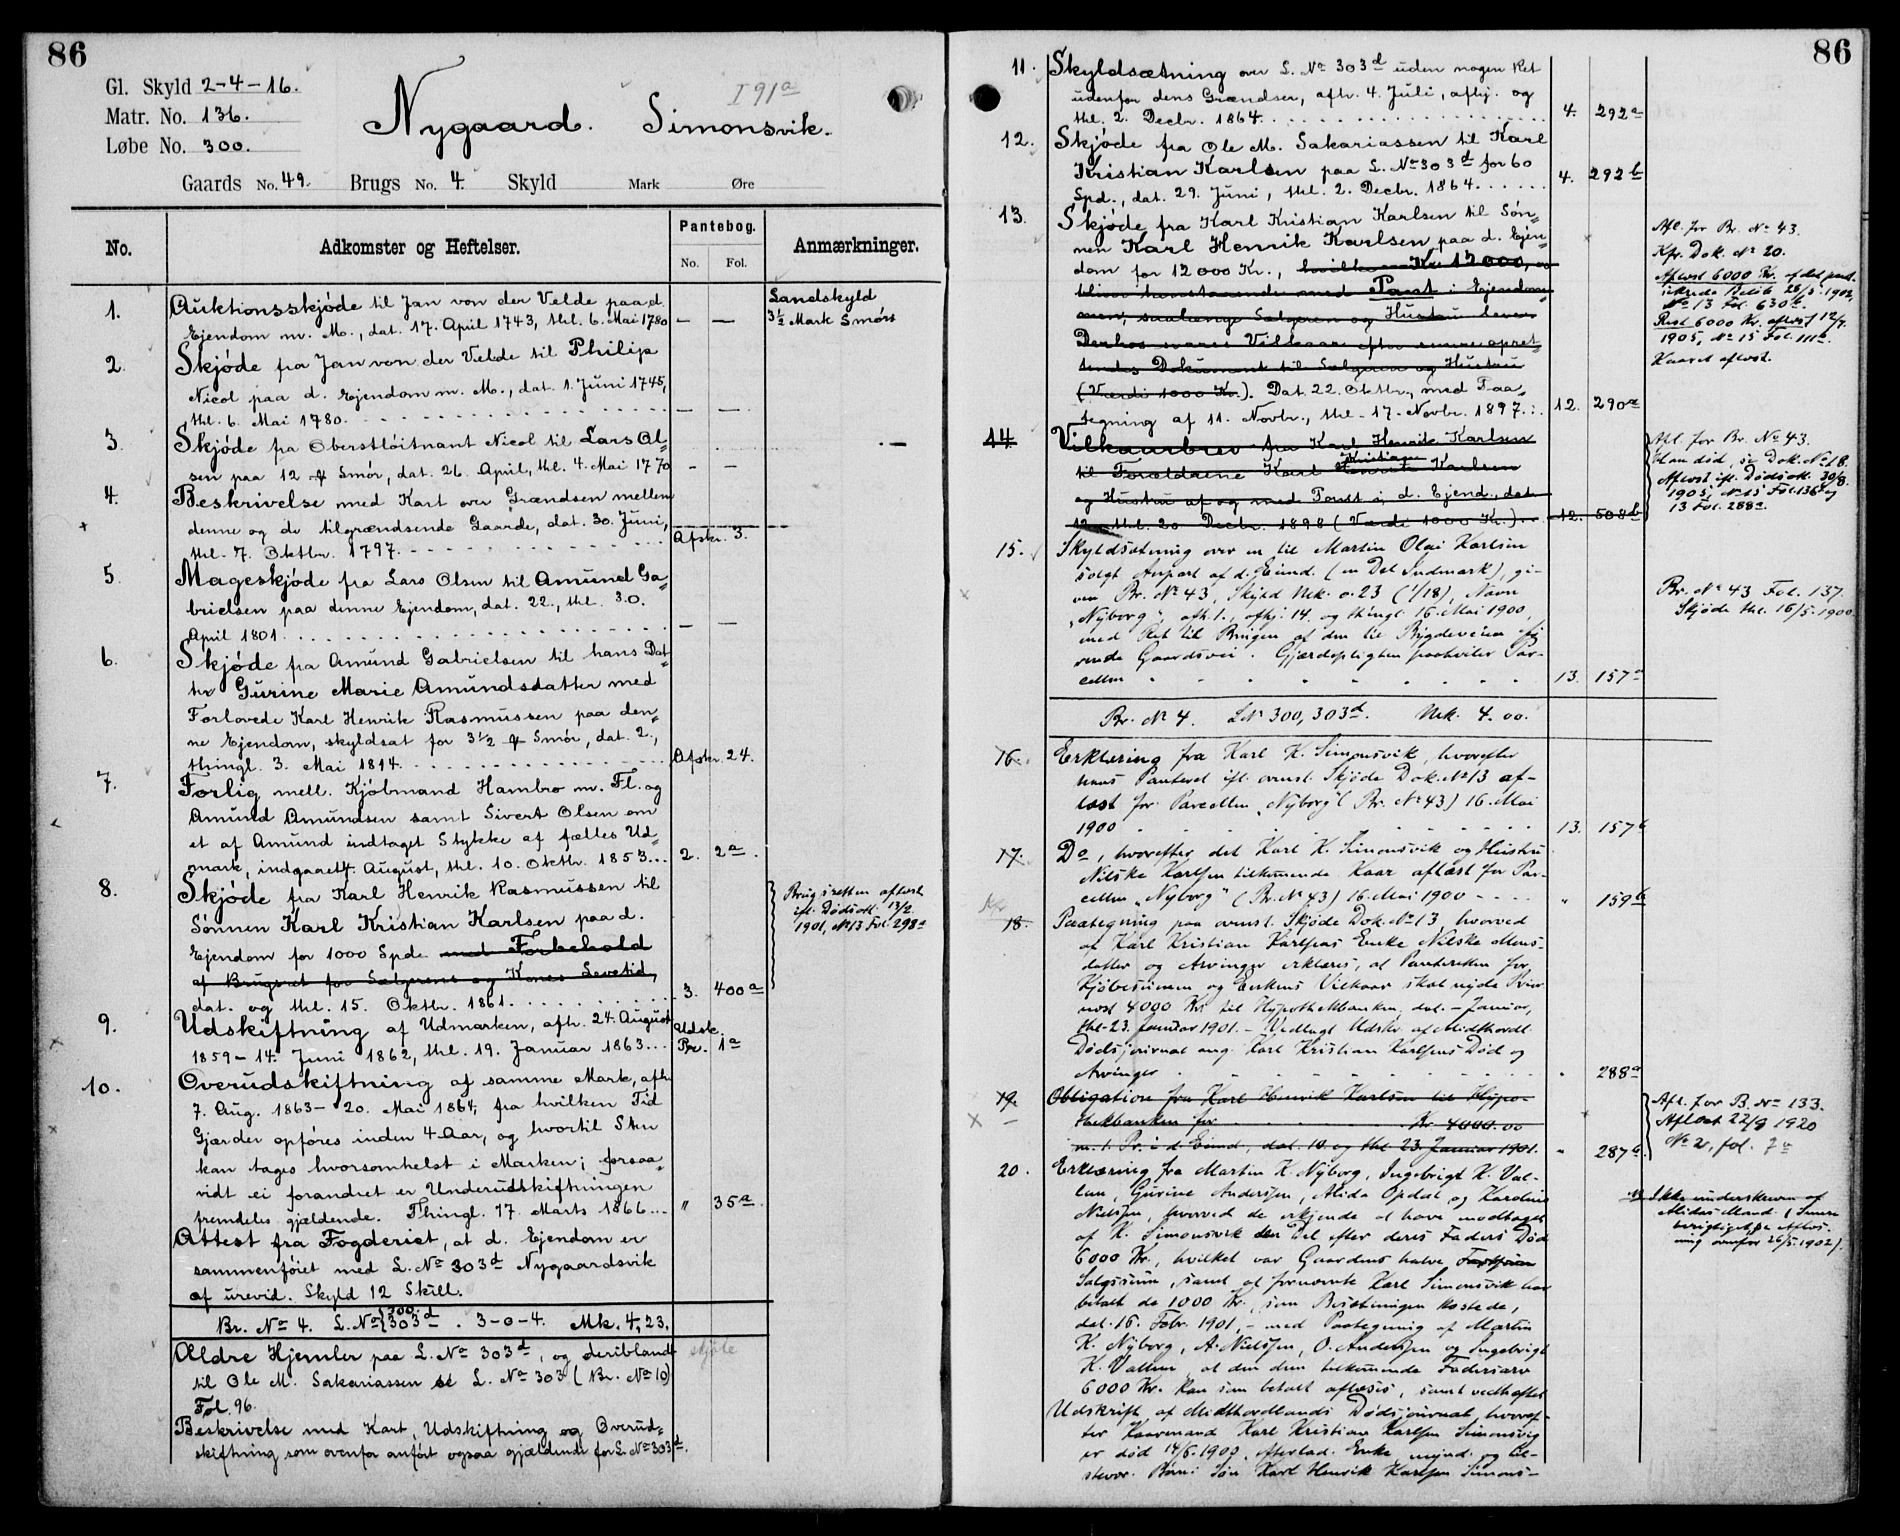 86
Gl. Skyld 2-4-16.
Matr. No. 136.
Løbe No. 300.
I 91a
Nygaard. Simonsvik.
Gaards No. 49. Brugs No. 4. Skyld Mark Øre
No. Adkomster og Heftelser. Pantebog. No. Fol. Anmærkninger.
1. Auktionsskjøde til Jan von der Velde paa d.
Ejendom m. M., dat. 17. April 1743, thl. 6. Mai 1780 — —
Landskyld
3½ Mark Smørs
2. Skjøde fra Jan von der Velde til Philip
Nicol paa d. Ejendom m. M., dat. 1. Juni 1745,
thl. 6. Mai 1780. — —
3. Skjøde fra Oberstløitnant Nicol til Lars Ol-
sen paa 12 Smør, dat. 26. April, thl. 4. Mai 1770 — —
4. Beskrivelse med Kart over Grændsen mellem
denne og de tilgrændsende Gaarde, dat. 30. Juni,
thl. 7. Oktbr. 1797. Afskr. 3.
5. Mageskjøde fra Lars Olsen til Amund Ga-
brielsen paa denne Ejendom, dat. 22., thl. 30.
April 1801. — —
6. Skjøde fra Amund Gabrielsen til hans Dat-
ter Gurine Marie Amundsdatter med
Forlovede Karl Henrik Rasmussen paa den-
ne Ejendom, skyldsat for 3½ Smør, dat. 2.,
thingl. 3. Mai 1814. Afskr. 24.
7. Forlig mell. Kjøbmand Hambro m. Fl. og
Amund Amundsen samt Sivert Olsen om
et af Amund indtaget Stykke af fælles Ud-
mark, indgaaet 4. August, thl. 10. Oktbr. 1853... 2. 2a.
8. Skjøde fra Karl Henrik Rasmussen til
Sønnen Karl Kristian Karlsen paa d.
Ejendom for 1000 Spd. med Forbehold
af Brugsret for Sælgerens og Kones Levetid,
dat. og thl. 15. Oktbr. 1861. 3. 400a
Brugsretten aflæst
ifl. Dødsatt. 13/2.
1901, No 13 Fol. 298a
9. Udskiftning af Udmarken, afh. 24. August
1859 - 14. Juni 1862, thl. 19. Januar 1863... Udsk. Pr. 1a
10. Overudskiftning af samme Mark, afh.
7. Aug. 1863 - 20. Mai 1864, fra hvilken Tid
Gjærder opføres inden 4 Aar, og hvortil Sten
kan tages hvorsomhelst i Marken; forsaa-
vidt ei forandret er Underudskiftningen
fremdeles gjældende. Thingl. 17. Marts 1866... " 35a.
Attest fra Fogderiet, at d. Ejendom er
sammenføiet med L. No 303d Nygaardsvik
af urevid. Skyld 12 Skill.
Br. No 4. L. No {300. 303d. 3-0-4. Mk. 4,23.
Ældre Hjemler paa L. No 303d, og deriblandt skjøde
til Ole M. Sakariassen se L. No 303 (Br. No 10)
Fol. 96.
Beskrivelse med Kart, Udskiftning og Overud-
skiftning som ovenfor anført ogsaa gjældende for L. No 303d.
86
11. Skyldsætning over L. No 303d uden nogen Ret
udenfor dens Grændser, afh. 4. Juli, afhj. og
thl. 2. Decbr. 1864. 4. 292a
12. Skjøde fra Ole M. Sakariassen til Karl
Kristian Karlsen paa L. No 303d for 60
Spd., dat. 29. Juni, thl. 2. Decbr. 1864. 4. 292b
13. Skjøde fra Karl Kristian Karlsen til Søn-
nen Karl Henrik Karlsen paa d. Ejen-
dom for 12000 Kr., hvilke Kr. 12000,
bliver henstaaende med Pant i Ejendom-
men, saalænge Sælgeren og Hustru lever
Derhos svares Vilkaar efter senere opret-
tendes Dokument til Sælgeren og Hustru
(Værdi 1000 Kr.). Dat. 22. Oktbr., med Paa-
tegning af 11. Novbr., thl. 17. Novbr. 1897. 12. 290a
Afl. for Br. No 43.
Kfr. Dok. No 20.
Aflæst 6000 Kr. af det pant-
sikrede Beløb 26/5 1902,
No 13 Fol. 630b.
Rest 6000 Kr. aflæst 12/7.
1905, No 15 Fol. 111a.
Kaaret aflæst.
14. Vilkaarbrev fra Karl Henrik Karlsen
til Forældrene Karl Kristian Karlsen
og Hustru af og med Pant i d. Ejend., dat.
12. thl. 20 Decbr. 1898 (Værdi 1000 Kr.). 12. 508b
Afl. for Br. No 43.
Han død, se Dok. No 18.
Aflæst ifl. Dødsatt. 30/8.
1905, No 15 Fol. 136a og
13 Fol. 288a.
15. Skyldsætning over en til Martin Olai Karlsen
solgt Anpart af d. Eiend. (en Del Indmark), gi-
ven Br. No 43, Skyld Mk. 0.23 (1/18), Navn
„Nyborg", afh. 1., afhj. 14. og thingl. 16. Mai 1900,
med Ret til Brugen af den til Bygdeveien
rende Gaardsvei. Gjærdepligten paahviler Par-
cellen 13. 157a
Br. No 43 Fol. 137.
Skjøde thl. 16/5 1900
Br. No 4. L No 300, 303d. Mk. 4.00.
16. Erklæring fra Karl K. Simonsvik, hvorefter
hans Panteret ifl. ovenst. Skjøde Dok. No 13 af-
læst for Parcellen „Nyborg" (Br. No 43) 16. Mai
1900 13. 157b
17. Do, hvorefter det Karl K. Simonsvik og Hustru
Nilske Karlsen tilkommende Kaar aflæst for Par-
cellen „Nyborg" (Br. No 43) 16. Mai 1900 " 159b
18. Paategning paa ovenst. Skjøde Dok. No 13 hvorved
af Karl Kristian Karlsens Enke Nilske Mons-
datter og Arvinger erklæres, at Panteretten for
Kjøbesummen og Enkens Vilkaar skal vige Prior
mod 4000 Kr. til Hypothekbanken, dat. - Januar,
thl. 23. Januar 1901. - Vedlagt Udskr. af Midthordl.
Dødsjournal ang. Karl Kristian Karlsens Død og
Arvinger " 288a
19. Obligation fra Karl Henrik Karlsen til Hypo-
thekbanken for Kr. 4000.00
m. 1. Pr. i d. Eiend., dat. 10. og thl. 23. Januar 1901. " 287b.
Afl. for B. No 133.
Aflæst 22/9 1920
No 21, fol. 7a
20. Erklæring fra Martin K. Nyborg, Ingebrigt K. Val-
len, Gurine Andersen, Alida Opdal og Kardine
Nielsen, hvorved de erkjende at have modtaget
af K. Simonsvik den Del efter deres Faders Død
6000 Kr., hvilket var Gaardens halve
Salgssum, samt at fornævnte Karl Simonsvik har
betalt de 1000 Kr., som Besætningen kostede,
dat. 16. Febr. 1901, - med Paategning af Martin
K. Nyborg, A. Nielsen, O. Andersen og Ingebrigt
K. Vallen at den dem tilkommende Fadersarv
6000 Kr. kan som betalt aflæses, samt vedheftet
Udskrift af Midthordlands Dødsjournal, hvoref-
ter Kaarmand Karl Kristian Karlsen Simonsvig
er død 14/6 1900, efterlad. Enke, mynd. og til-
stevær. Børn: Søn Karl Henrik Karlsen Simons-
Ikke underskreven af
Alidas Mand (Senere
berigtiget, se Aflæs-
ning ovenfor 26/5. 1902).